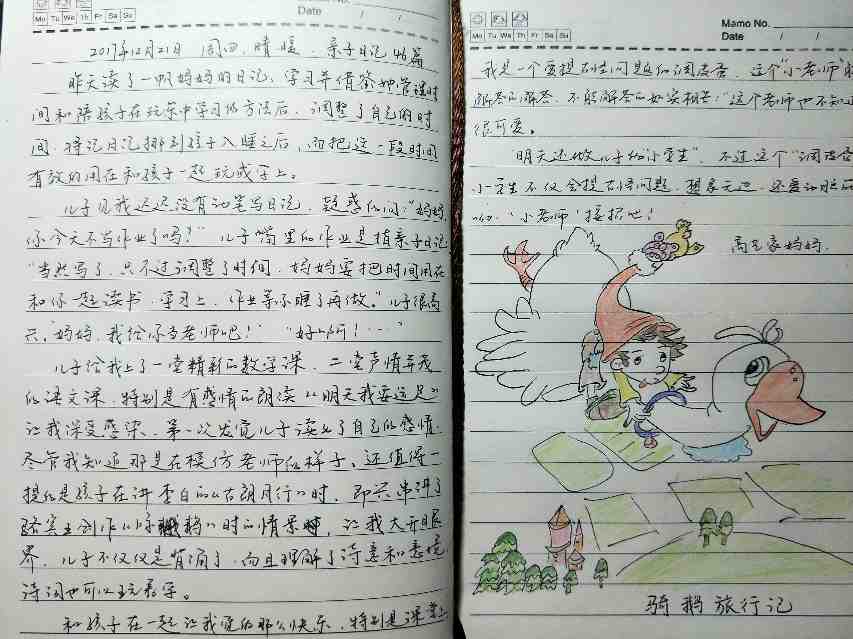 Date / /
Mo Tu We Th Fr Sa Su
2017年12月21日 周四 晴 暖 亲子日记 46篇
昨天读了一帆妈妈的日记，学习并借鉴她管理时
间和陪孩子在玩乐中学习的方法后，调整了自己的时
间，将记日记挪到孩子入睡之后，而把这一段时间
有效的用在和孩子一起玩或学上。
儿子见我迟迟没有动笔写日记，疑惑的问："妈妈，
你今天不写作业了吗？"儿子嘴里的作业是指亲子日记
"当然写了，只不过调整了时间，妈妈要把时间用在
和你一起读书、学习上，作业等你睡了再做。"儿子很高
兴，"妈妈，我给你当老师吧！" "好啊！……"
儿子给我上了一堂精彩的数学课，二堂声情并茂
的语文课，特别是有感情的朗读《明天我要远足》
让我深受感染，第一次发觉儿子读出了自己的感情，
尽管我知道那是在模仿老师的样子。还值得一
提的是孩子在讲李白的《古朗月行》时，即兴串讲了
骆宾王创作《咏鹅》时的情景，让我大开眼
界，儿子不仅仅是背诵了，而且理解了诗意和意境
诗词也可以玩着学。
和孩子在一起让我觉的那么快乐，特别是课堂上
Memo No.
Mo Tu We Th Fr Sa Su
Date / /
我是一个爱提古怪问题的调皮蛋，这个"小老师"能
解答的解答，不能解答的如实相告："这个老师也不知道
很可爱。
明天还做儿子的"小学生"，不过这个"调皮蛋
小学生不仅会提古怪问题，想象无边，还
哟，"小老师"接招吧！
妈妈
骑鹅旅行记